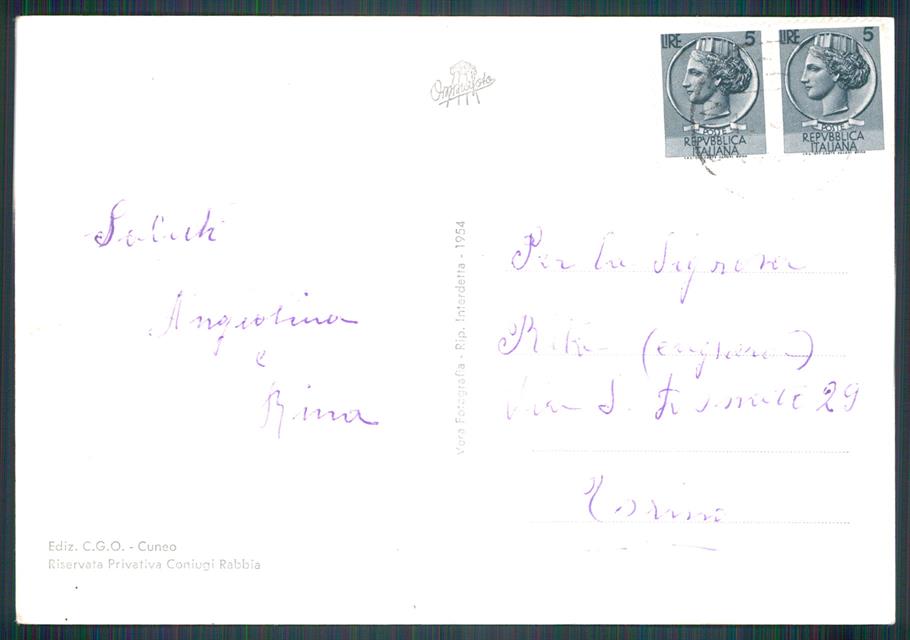 LIRE 5
POSTE
REPVBBLICA
ITALIANA
LIRE 5
POSTE
REPVBBLICA
ITALIANA
Saluti
Angiolina
e
Rina
Vera Fotografia - Rip. Interdetta - 1954
Per la Signora
Via S. 29
Torino
Ediz. C.G.O. - Cuneo
Riservata Privativa Coniugi Rabbia